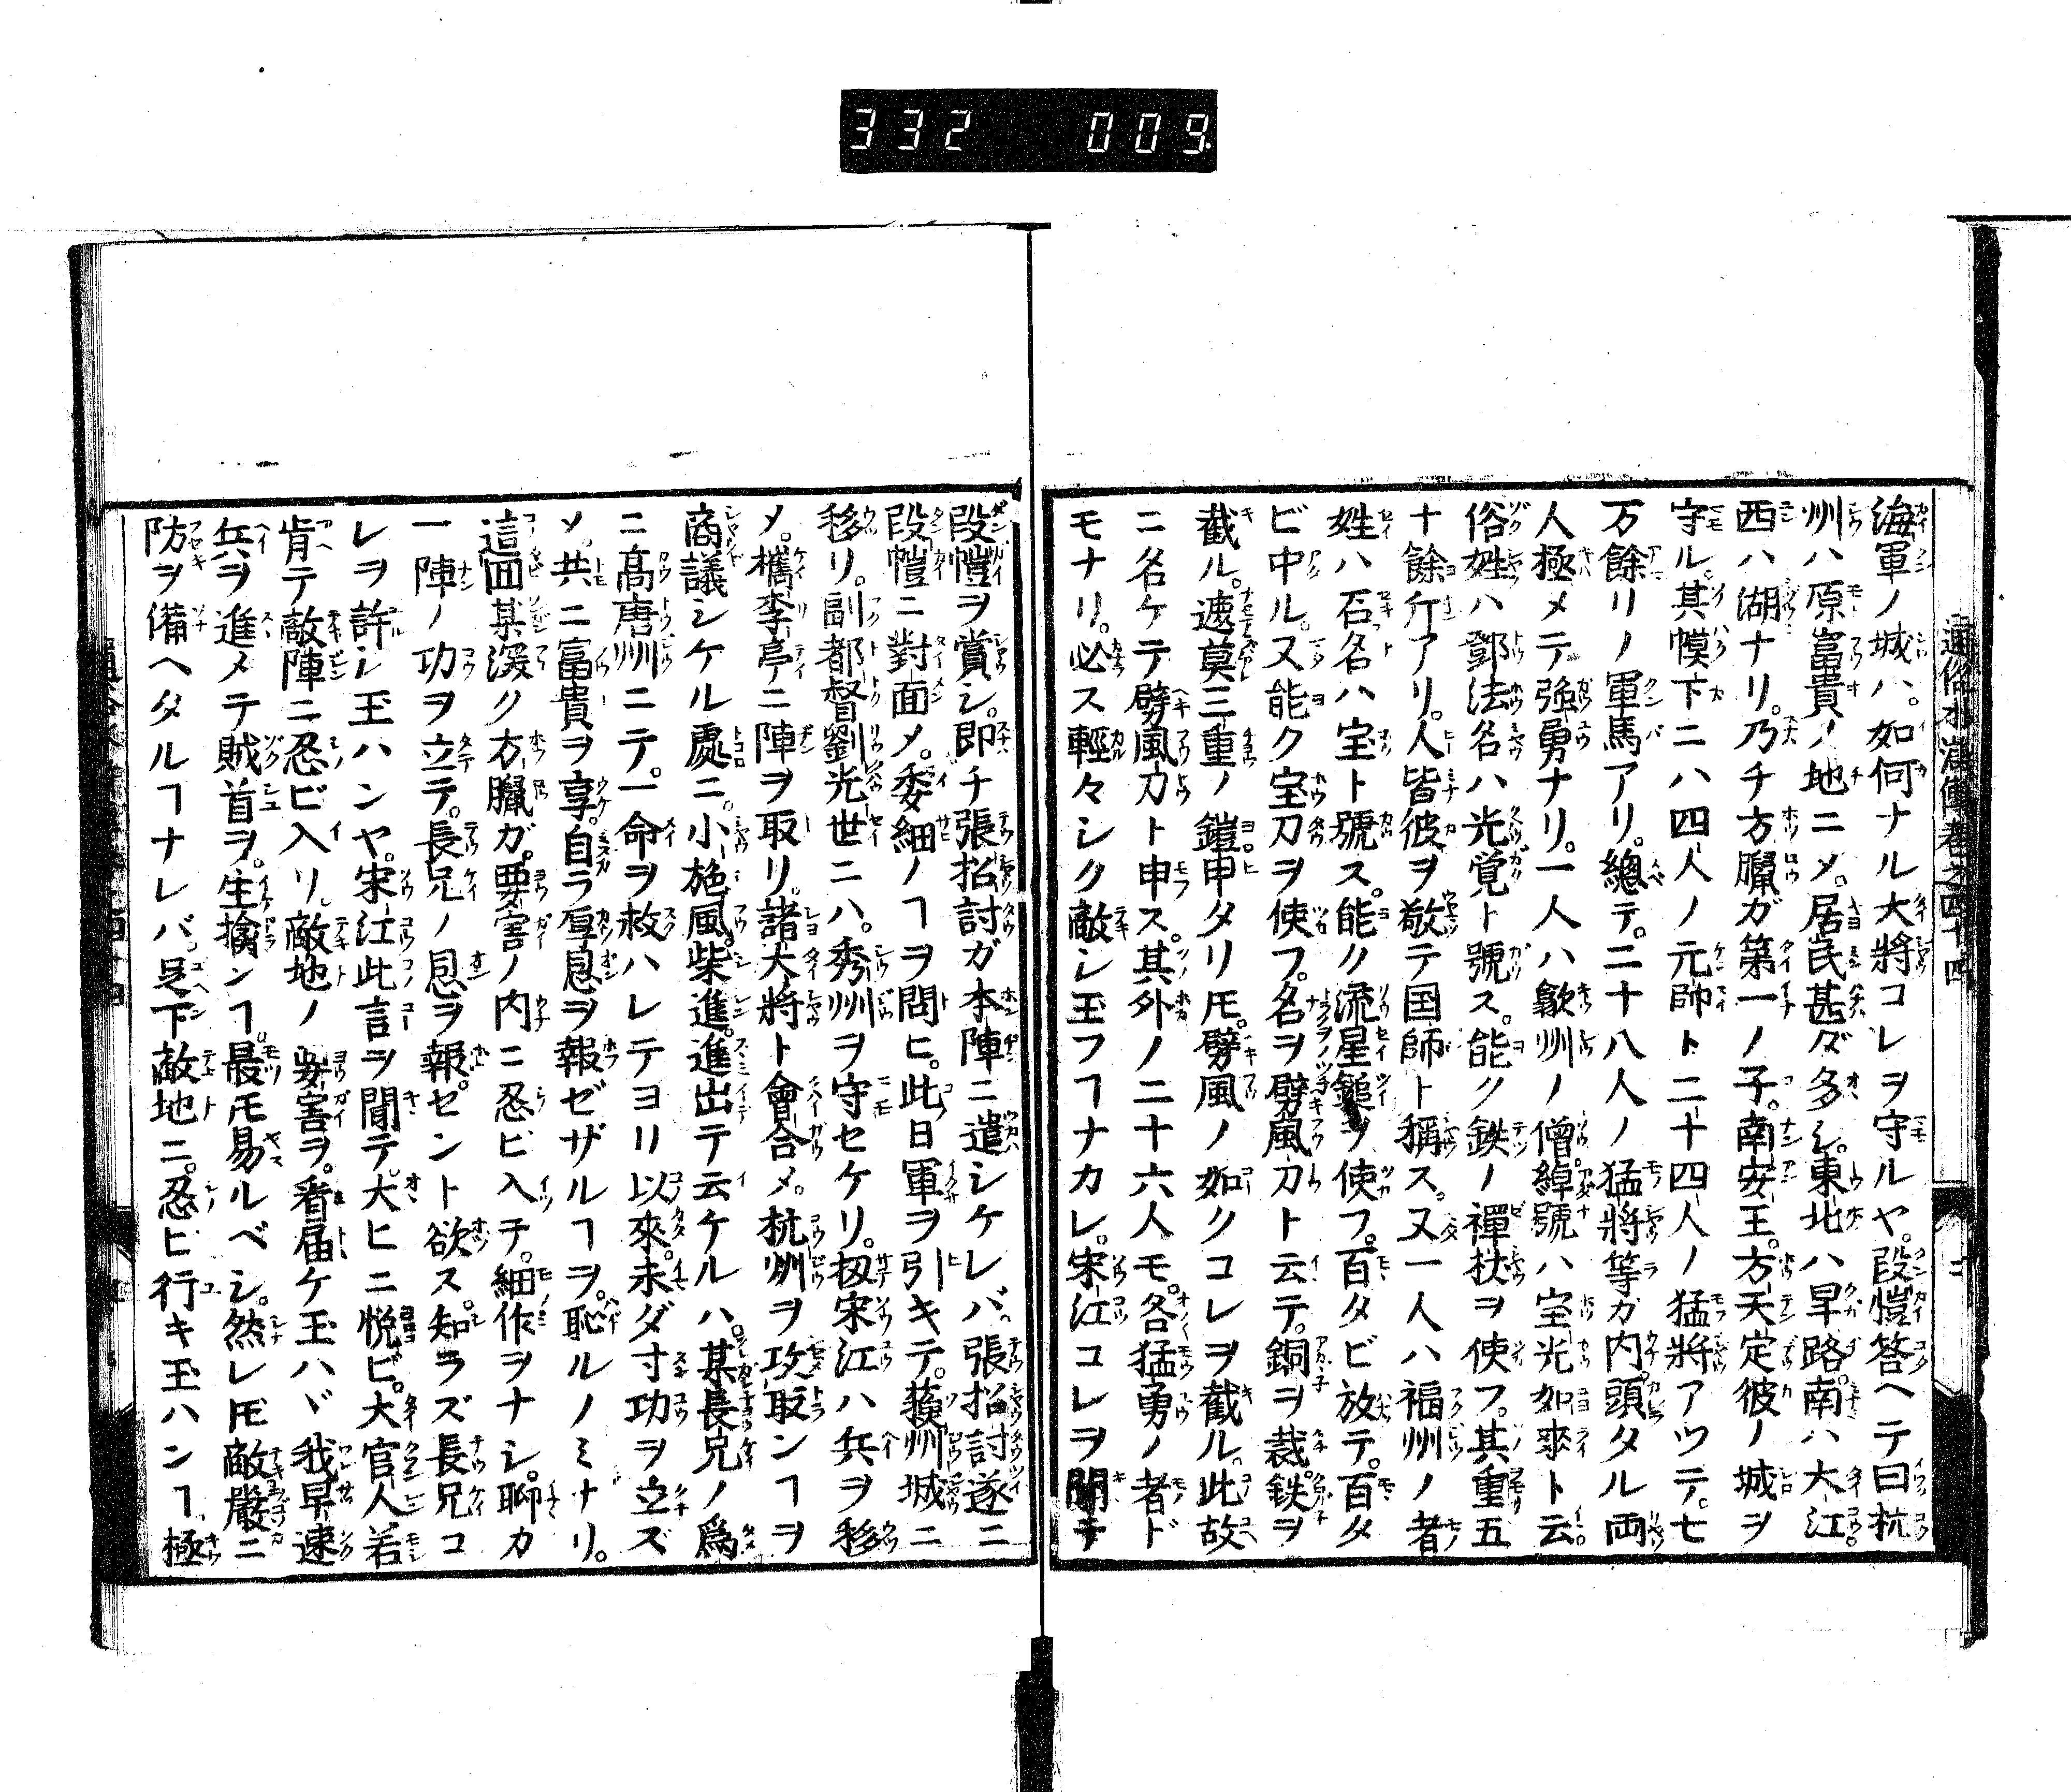 332 009
通俗水滸傳卷之四十四
海軍ノ城ハ。如何ナル大將コレヲ守ルヤ。段愷答ヘテ曰杭
州ハ原富貴ノ地ニメ。居民甚ダ多シ。東北ハ旱路。南ハ大江。
西ハ湖ナリ。乃チ方臘ガ第一ノ子。南安王。方天定彼ノ城ヲ
守ル。其幙下ニハ四人ノ元帥ト二十四人ノ猛將アツテ。七
万餘リノ軍馬アリ。總テ。二十八人ノ猛將等ガ内。頭タル両
人極メテ強勇ナリ。一人ハ歙州ノ僧。綽號ハ宝光如來ト云
俗姓ハ鄧法名ハ光覚ト號ス。能ク鉄ノ禪杖ヲ使フ。其重五
十餘斤アリ。人皆彼ヲ敬テ国師ト稱ス。又一人ハ福州ノ者
姓ハ石名ハ宝ト號ス。能ク流星鎚ヲ使フ。百タビ放テ。百タ
ビ中ル。又能ク宝刀ヲ使フ。名ヲ劈風刀ト云テ。銅ヲ裁。鉄ヲ
截ル。遮莫三重ノ鎧甲タリ𪜈。劈風ノ如クコレヲ截ル。此故
ニ名ケテ劈風刀ト申ス。其外ノ二十六人モ。各猛勇ノ者ド
モナリ。必ス輕々シク敵シ玉フヿナカレ。宋江コレヲ聞テ
段愷ヲ賞シ。即チ張招討ガ本陣ニ遣シケレバ。張招討遂ニ
段愷ニ對面メ。委細ノヿヲ問ヒ。此日軍ヲ引キテ。蘓州城ニ
移リ。副都督劉光世ニハ。秀州ヲ守セケリ。扨宋江ハ兵ヲ移
メ。檇李亭ニ陣ヲ取リ。諸大將ト會合メ。杭州ヲ攻取ンヿヲ
商議シケル處ニ。小旋風柴進。進出テ云ケルハ。某長兄ノ爲
ニ高唐州ニテ。一命ヲ救ハレテヨリ以來。未ダ寸功ヲ立ズ
メ。共ニ富貴ヲ享。自ラ厚恩ヲ報ゼザルヿヲ。恥ルノミナリ。
這回某深ク方臘ガ。要害ノ内ニ忍ビ入テ。細作ヲナシ。聊カ
一陣ノ功ヲ立テ。長兄ノ恩ヲ報ゼント欲ス。知ラズ長兄コ
レヲ許シ玉ハンヤ。宋江此言ヲ聞テ。大ヒニ悦ビ。大官人若
肯テ敵陣ニ忍ビ入リ。敵地ノ要害ヲ。看届ケ玉ハヾ我早速
兵ヲ進メテ賊首ヲ。生擒ンヿ。最モ易ルベシ。然レ𪜈敵嚴ニ
防ヲ備ヘタルヿナレバ。足下敵地ニ。忍ヒ行キ玉ハンヿ。極